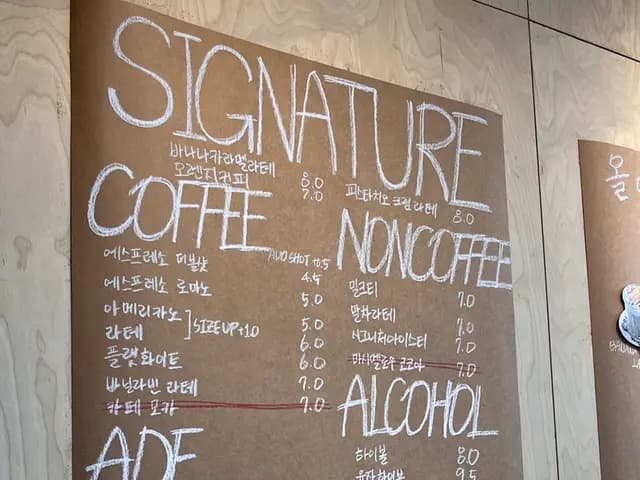 SIGNATURE
바나나카라멜라떼 8.0
오렌지커피 7.0
피스타치오 크림라떼 8.0
COFFEE
에스프레소 더블샷 4.5
에스프레소 로마노 5.0
아메리카노 5.0
라떼 6.0
SIZE UP+1.0
플랫화이트 6.0
바닐라빈 라떼 7.0
카페 모카 7.0
NONCOFFEE
밀크티 7.0
말차라떼 7.0
시그니처아이스티 7.0
마시멜로우 코코아 7.0
ALCOHOL
하이볼 8.0
유자하이볼 9.5
ADE
올